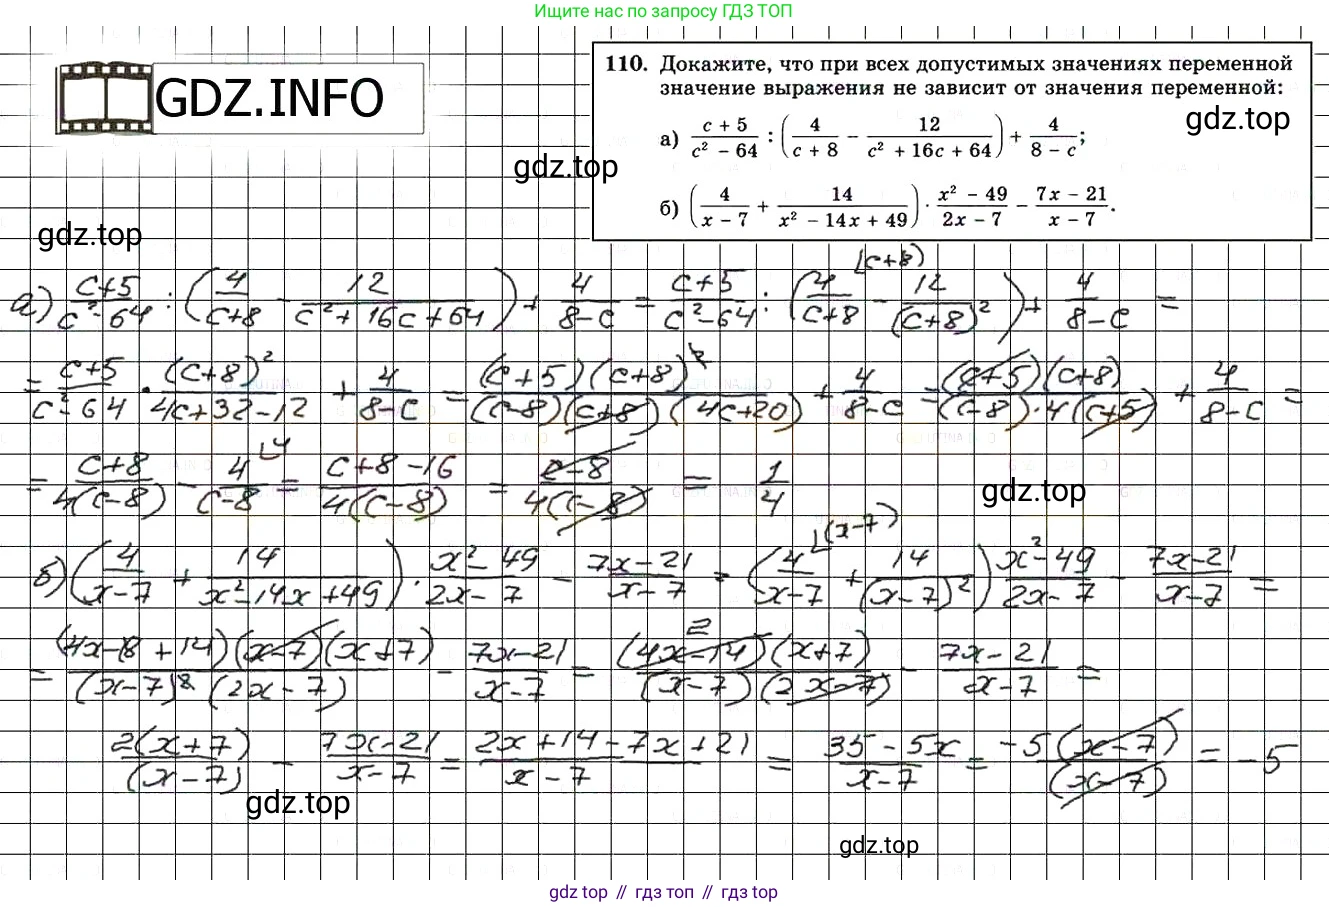 Ищите нас по запросу ГДЗ ТОП
GDZ.INFO
110. Докажите, что при всех допустимых значениях переменной
значение выражения не зависит от значения переменной:
gdz.top
а) (c + 5)/(c² − 64) : (4/(c + 8) − 12/(c² + 16c + 64)) + 4/(8 − c);
gdz.top
б) (4/(x − 7) + 14/(x² − 14x + 49)) · (x² − 49)/(2x − 7) − (7x − 21)/(x − 7).
gdz.top
а) (c+5)/(c²−64) : (4/(c+8) − 12/(c²+16c+64)) + 4/(8−c) = (c+5)/(c²−64) : (4/(c+8) ⌊(c+8) − 12/(c+8)²) + 4/(8−c) =
= (c+5)/(c²−64) · (c+8)²/(4c+32−12) + 4/(8−c) = (c+5)(c+8)²/((c−8)(c+8)(4c+20)) + 4/(8−c) = (c+5)(c+8)/((c−8)·4(c+5)) + 4/(8−c) =
= (c+8)/(4(c−8)) − 4/(c−8) ⌊4 = (c+8−16)/(4(c−8)) = (c−8)/(4(c−8)) = 1/4
gdz.top
б) (4/(x−7) + 14/(x²−14x+49)) · (x²−49)/(2x−7) − (7x−21)/(x−7) = (4/(x−7) ⌊(x−7) + 14/(x−7)²) (x²−49)/(2x−7) − (7x−21)/(x−7) =
= (4x−28+14)(x−7)(x+7)/((x−7)²(2x−7)) − (7x−21)/(x−7) = (4x−14)²(x+7)/((x−7)(2x−7)) − (7x−21)/(x−7) =
2(x+7)/(x−7) − (7x−21)/(x−7) = (2x+14−7x+21)/(x−7) = (35−5x)/(x−7) = −5(x−7)/(x−7) = −5
gdz.top
gdz.top
gdz top // гдз топ // гдз top